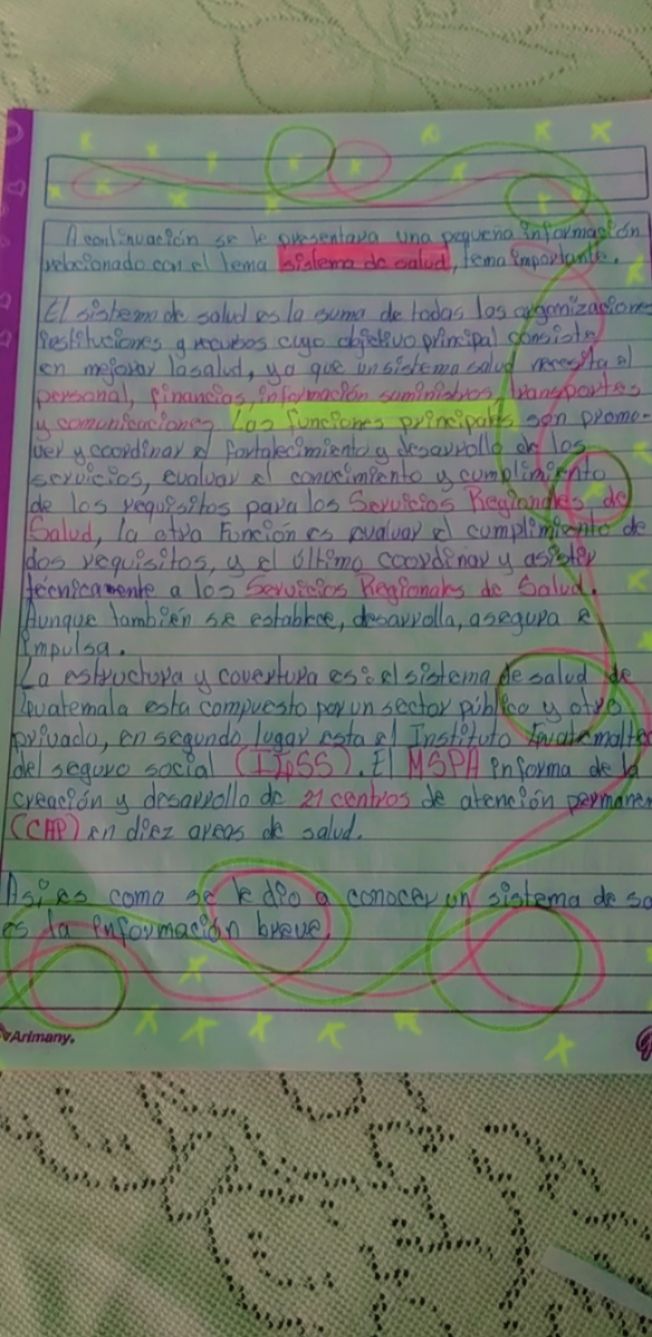 A continuación se le presentara una pequeña información
relacionado con el tema sistema de salud, tema importante.
El sistema de salud es la suma de todas las organizaciones
institiuciones y recursos cuyo objetivo principal consiste
en mejorar la salud, ya que un sistema salud necesita el
personal, financias, información suministros, transportes
y comunicaciones Las funciones principales son promo-
ver y coordinar el fortalecimiento y desarrollo de los
servicios, evaluar el conocimiento y cumplimiento
de los requisitos para los Servicios Regionales de
Salud, la otra Función es evaluar el cumplimiento de
dos requisitos, y el último coordinar y asistir
técnicamente a los Servicios Regionales de Salud.
Aunque también se establece, desarrolla, asegura e
impulsa.
La estructura y covertura es: el sistema de salud de
Guatemala esta compuesto por un sector público y otro
privado, en segundo lugar esta el Instituto Guatemalte
del seguro social (IGSS). El MSPA informa de la
creación y desarrollo de 21 centros de atención permanen
(CAP) en diez areas de salud.
Asi es como se le dio a conocer un sistema de sa
es la información breve.
Arimany.